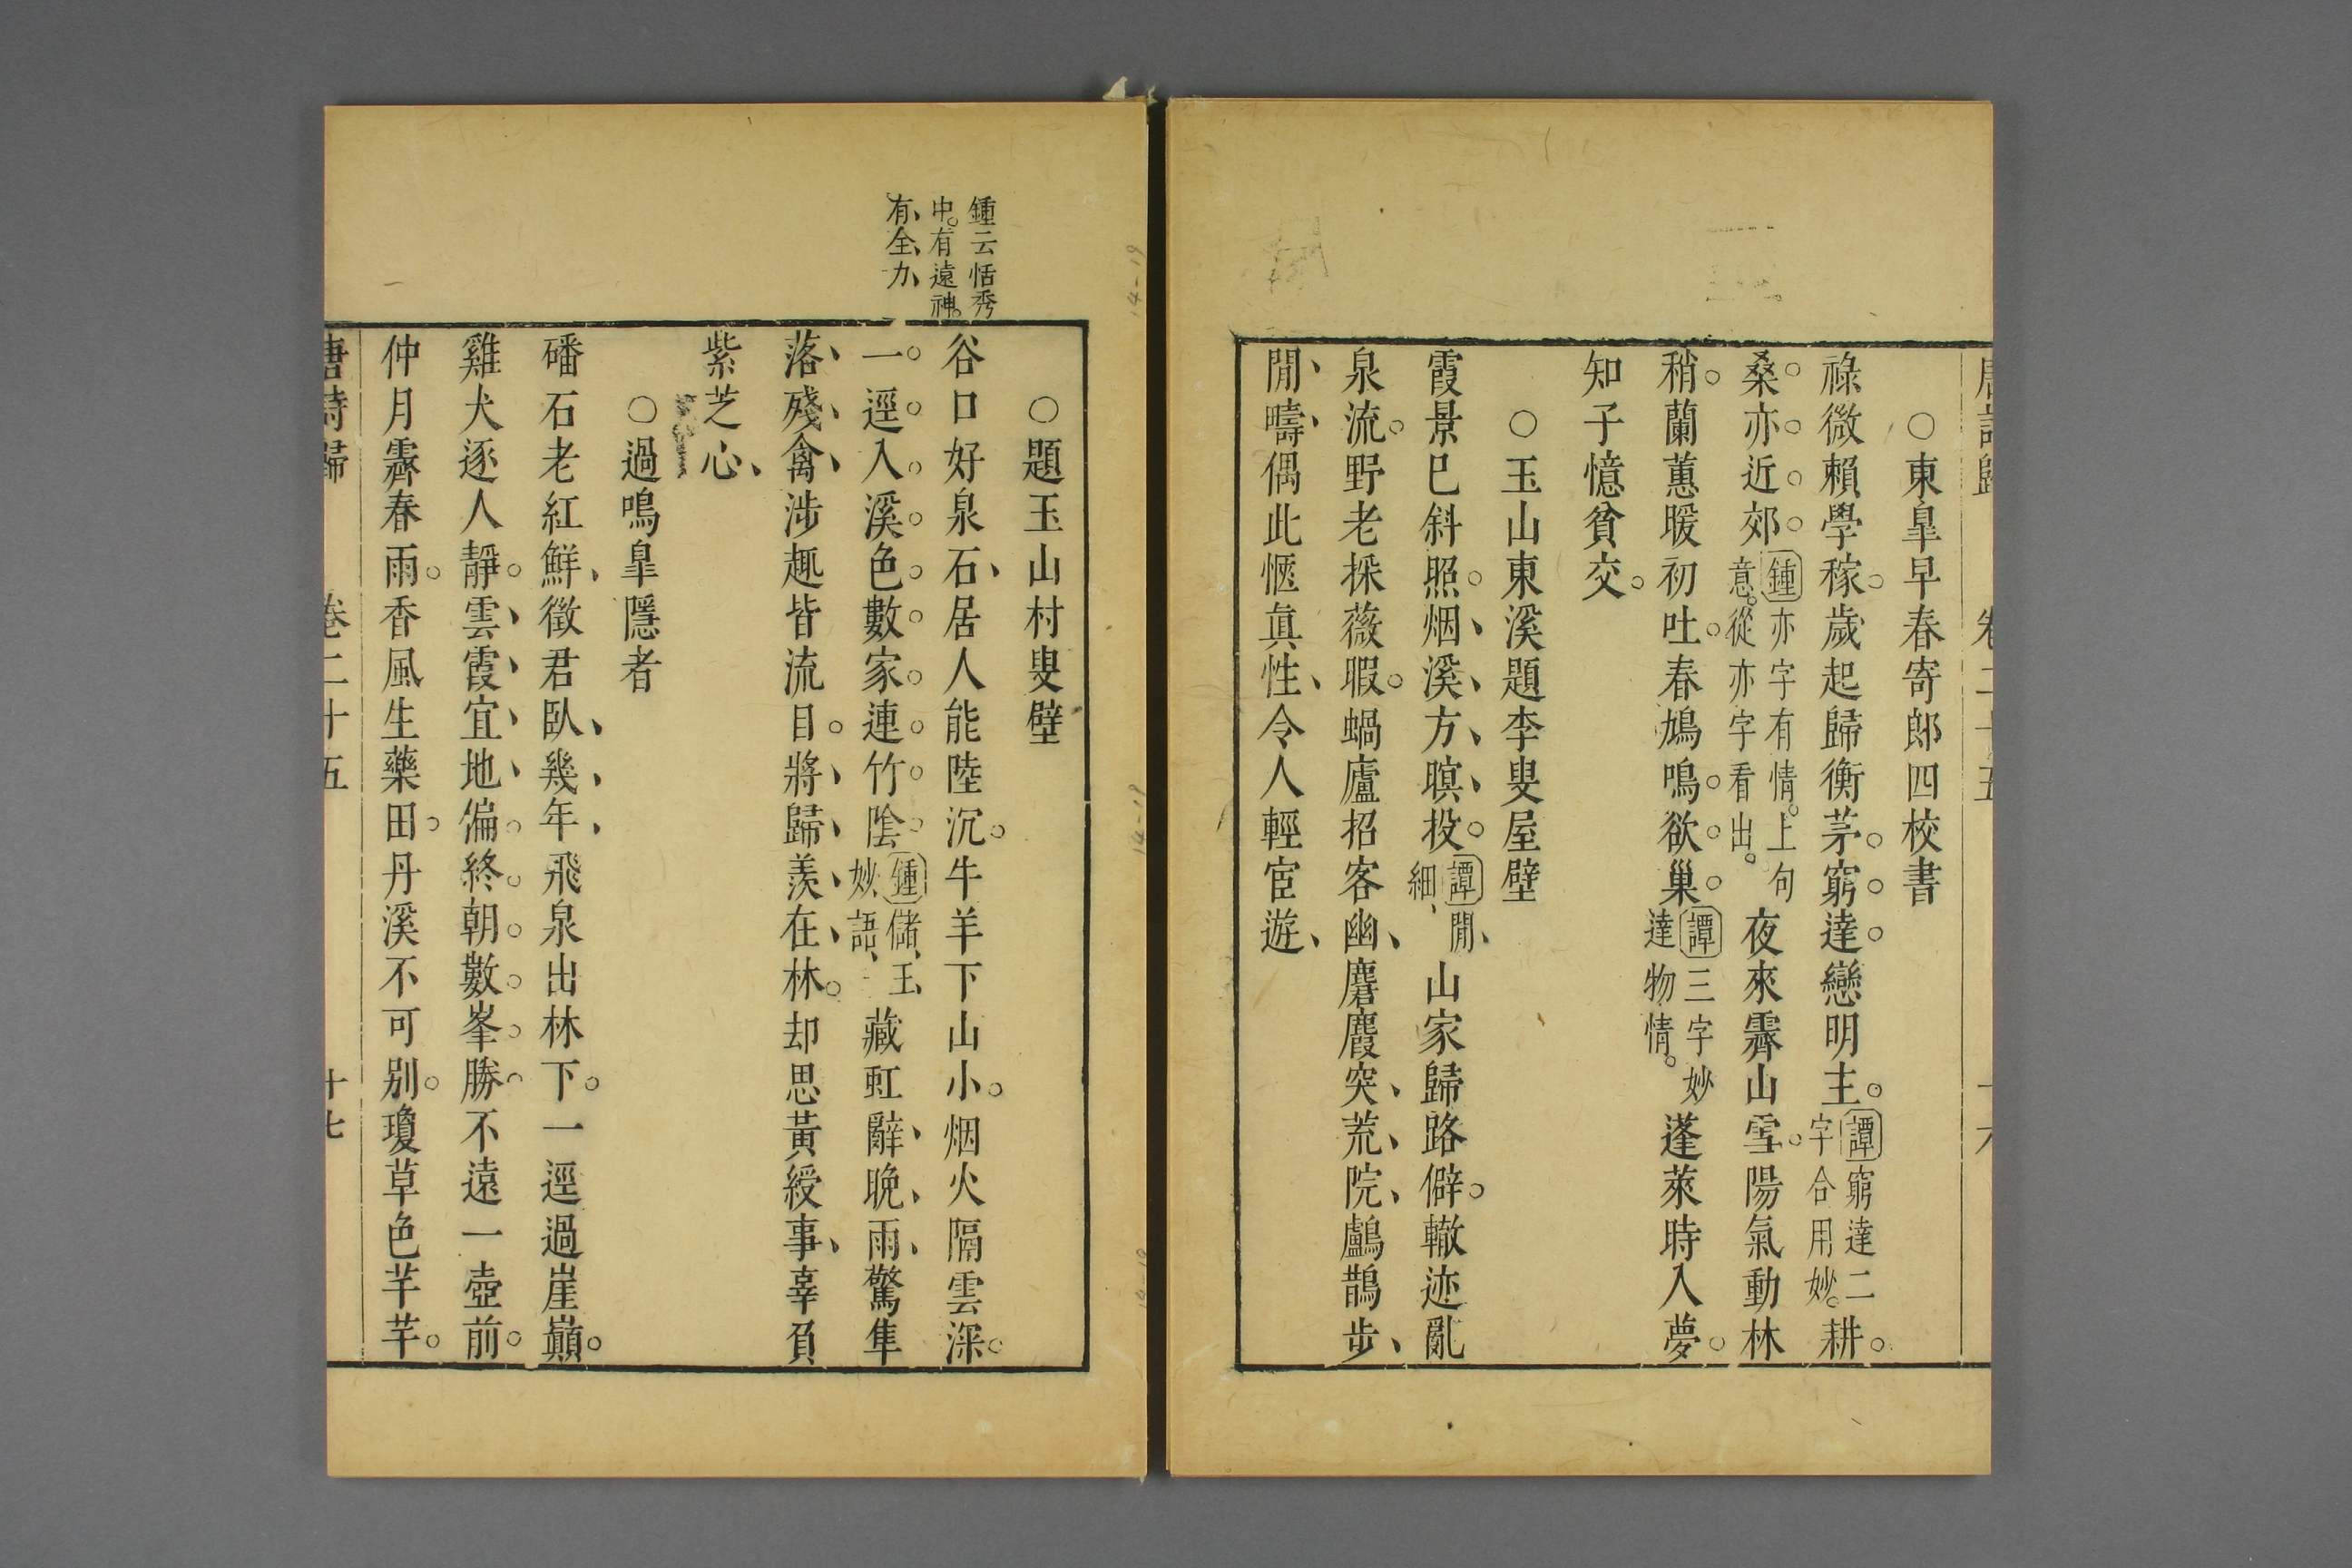 唐詩歸 卷二十五 十六
○東臯早春寄郎四校書
祿微賴學稼歲起歸衡茅窮達戀明主譚窮達二字合用妙耕
桑亦近郊鍾亦字有情上句意從亦字看出夜來霽山雪陽氣動林
稍蘭蕙暖初吐春鳩鳴欲巢譚三字妙達物情蓬萊時入夢
知子憶貧交
○玉山東溪題李叟屋壁
霞景巳斜照烟溪方暝投譚閒細山家歸路僻轍迹亂
泉流野老採薇暇蝸廬招客幽麏麚突荒院鸕鷀步
閒疇偶此愜眞性令人輕宦遊
鍾云恬秀
中有遠神
有全力
○題玉山村叟壁
谷口好泉石居人能陸沉牛羊下山小烟火隔雲深
一逕入溪色數家連竹陰鍾儲王妙語藏虹辭晚雨驚隼
落殘禽涉趣皆流目將歸羨在林却思黃綬事辜負
紫芝心
○過鳴臯隱者
磻石老紅鮮徵君臥幾年飛泉出林下一逕過崖巔
雞犬逐人靜雲霞宜地偏終朝數峯勝不遠一壺前
仲月霽春雨香風生藥田丹溪不可別瓊草色芊芊
唐詩歸 卷二十五 十七